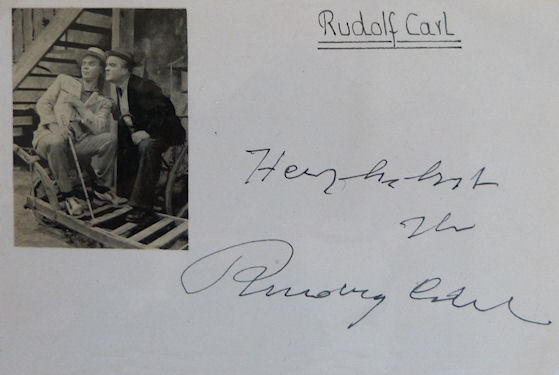 Rudolf Carl
Herzlichst
Ihr
Rudolf Carl